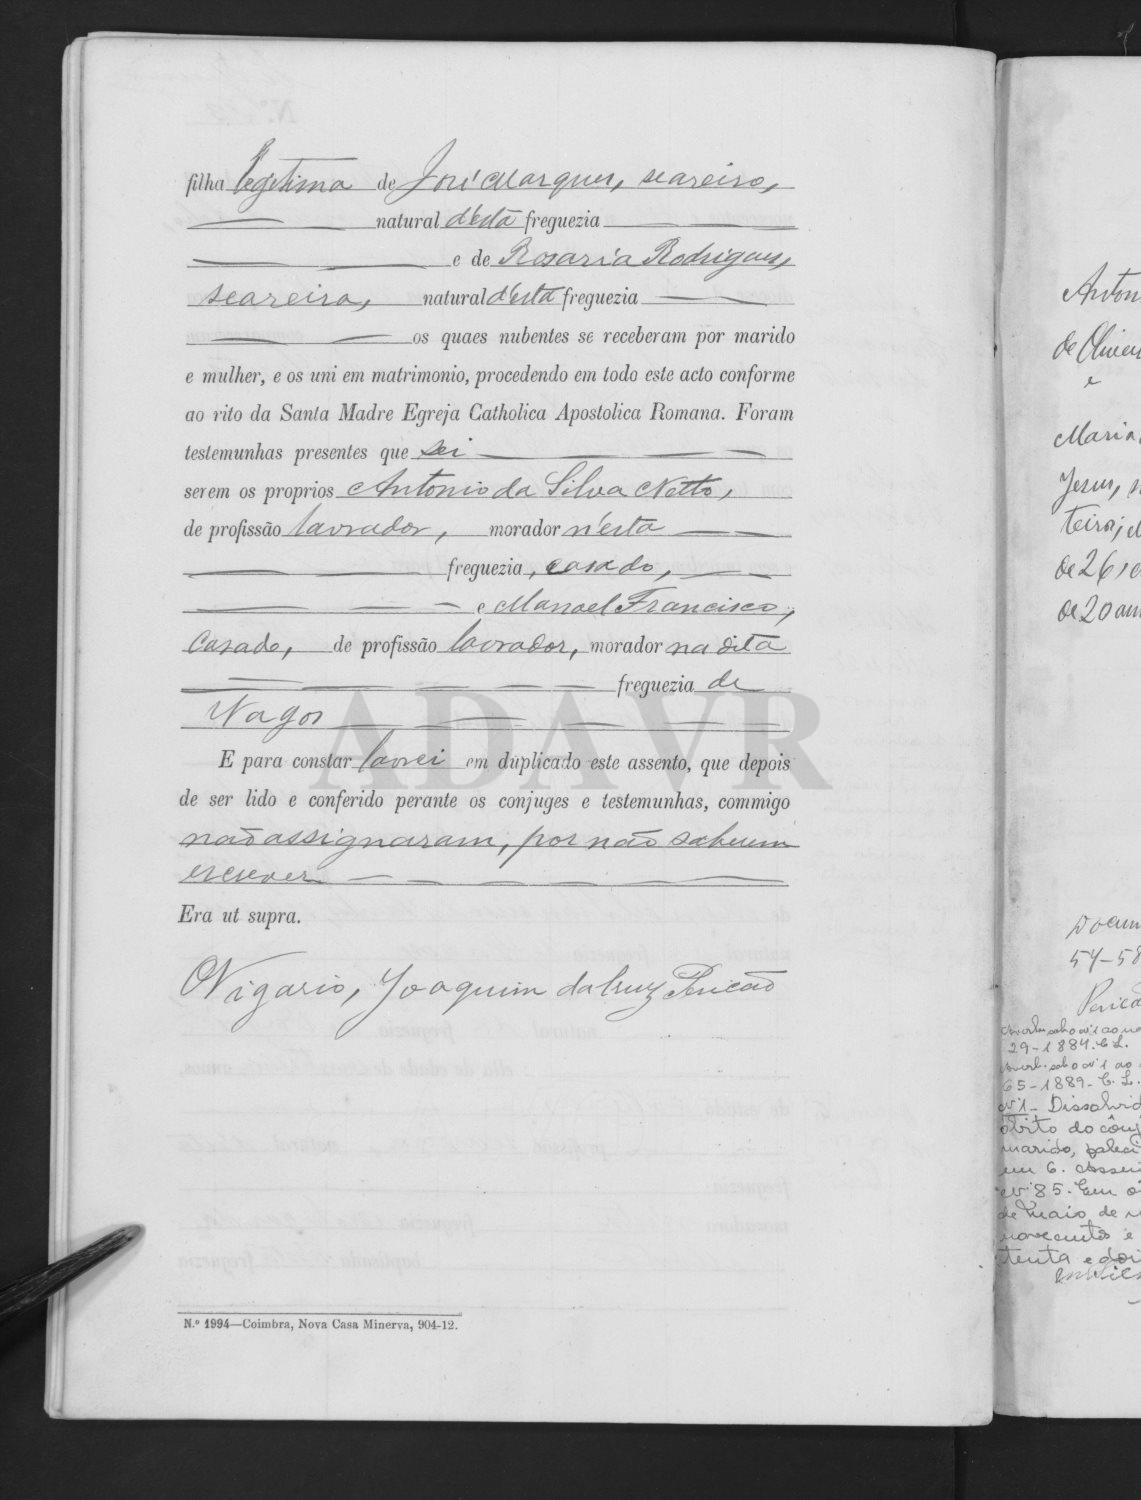 filha legitima de José Marques, seareiro,
natural d'esta freguezia
e de Rosaria Rodrigues,
seareira, natural d'esta freguezia
os quaes nubentes se receberam por marido
e mulher, e os uni em matrimonio, procedendo em todo este acto conforme
ao rito da Santa Madre Egreja Catholica Apostolica Romana. Foram
testemunhas presentes que sei
serem os proprios Antonio da Silva Netto,
de profissão lavrador, morador n'esta
freguezia, casado,
e Manoel Francisco,
casado, de profissão lavrador, morador na dita
freguezia de
Vagos
E para constar lavrei em duplicado este assento, que depois
de ser lido e conferido perante os conjuges e testemunhas, commigo
não assignaram, por não saberem
escrever
Era ut supra.
O Vigario, Joaquim da Cruz Pericão
N.º 1994—Coimbra, Nova Casa Minerva, 904-12.
ADAVR
Anton
de Olivei
e
Maria
Jesus,
teira,
de 26
de 20 an
Docum
54-58
Perica
29-1884. C. L.
65-1889. C. L.
Nº 1 - Dissolvid
obito do conj
marido, faleci
em 6. Assen
nº 85. Em
de Maio de
novecentos e
tenta e doi